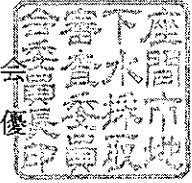 座間市地
下水採取
審査委員
会委員長印
会
優